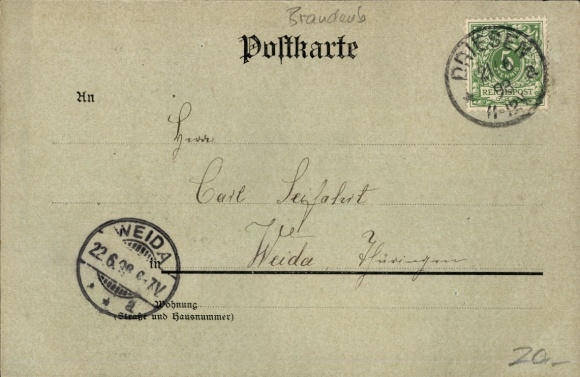 Brandenb
Postkarte
DRIESEN
21 6
98
a
11-12V
5
REICHSPOST
An
Herrn
Carl Seifahrt
Weida, Thüringen
in
WEIDA
22.6.98.6-7V.
* * a
Wohnung
(Straße und Hausnummer)
20,-